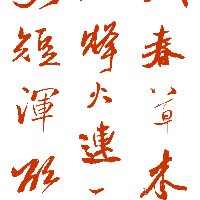 春草木
烽火連
短渾欲